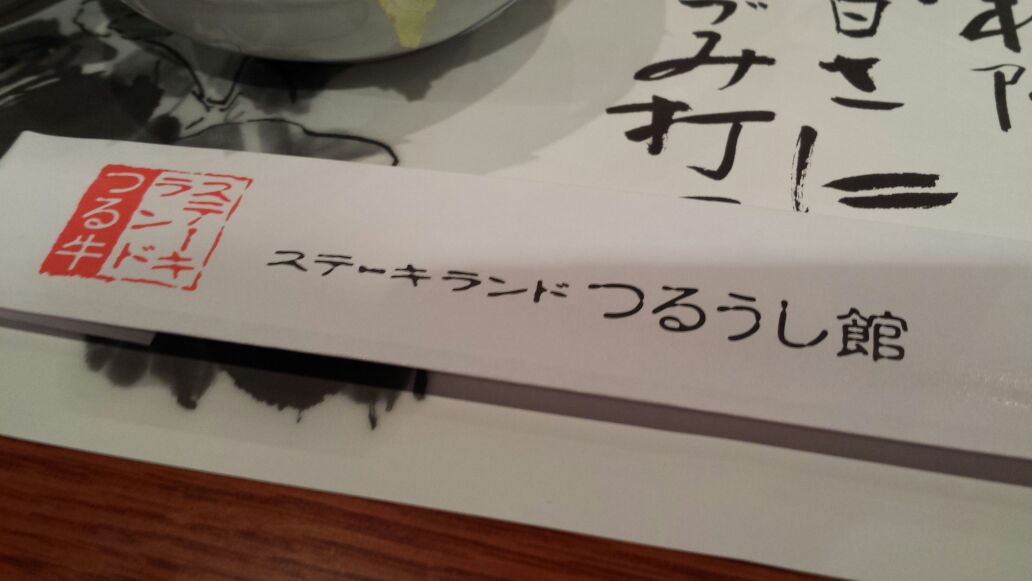 ステーキ
ランド
つる牛
ステーキランド つるうし館
甘さ
づみ打